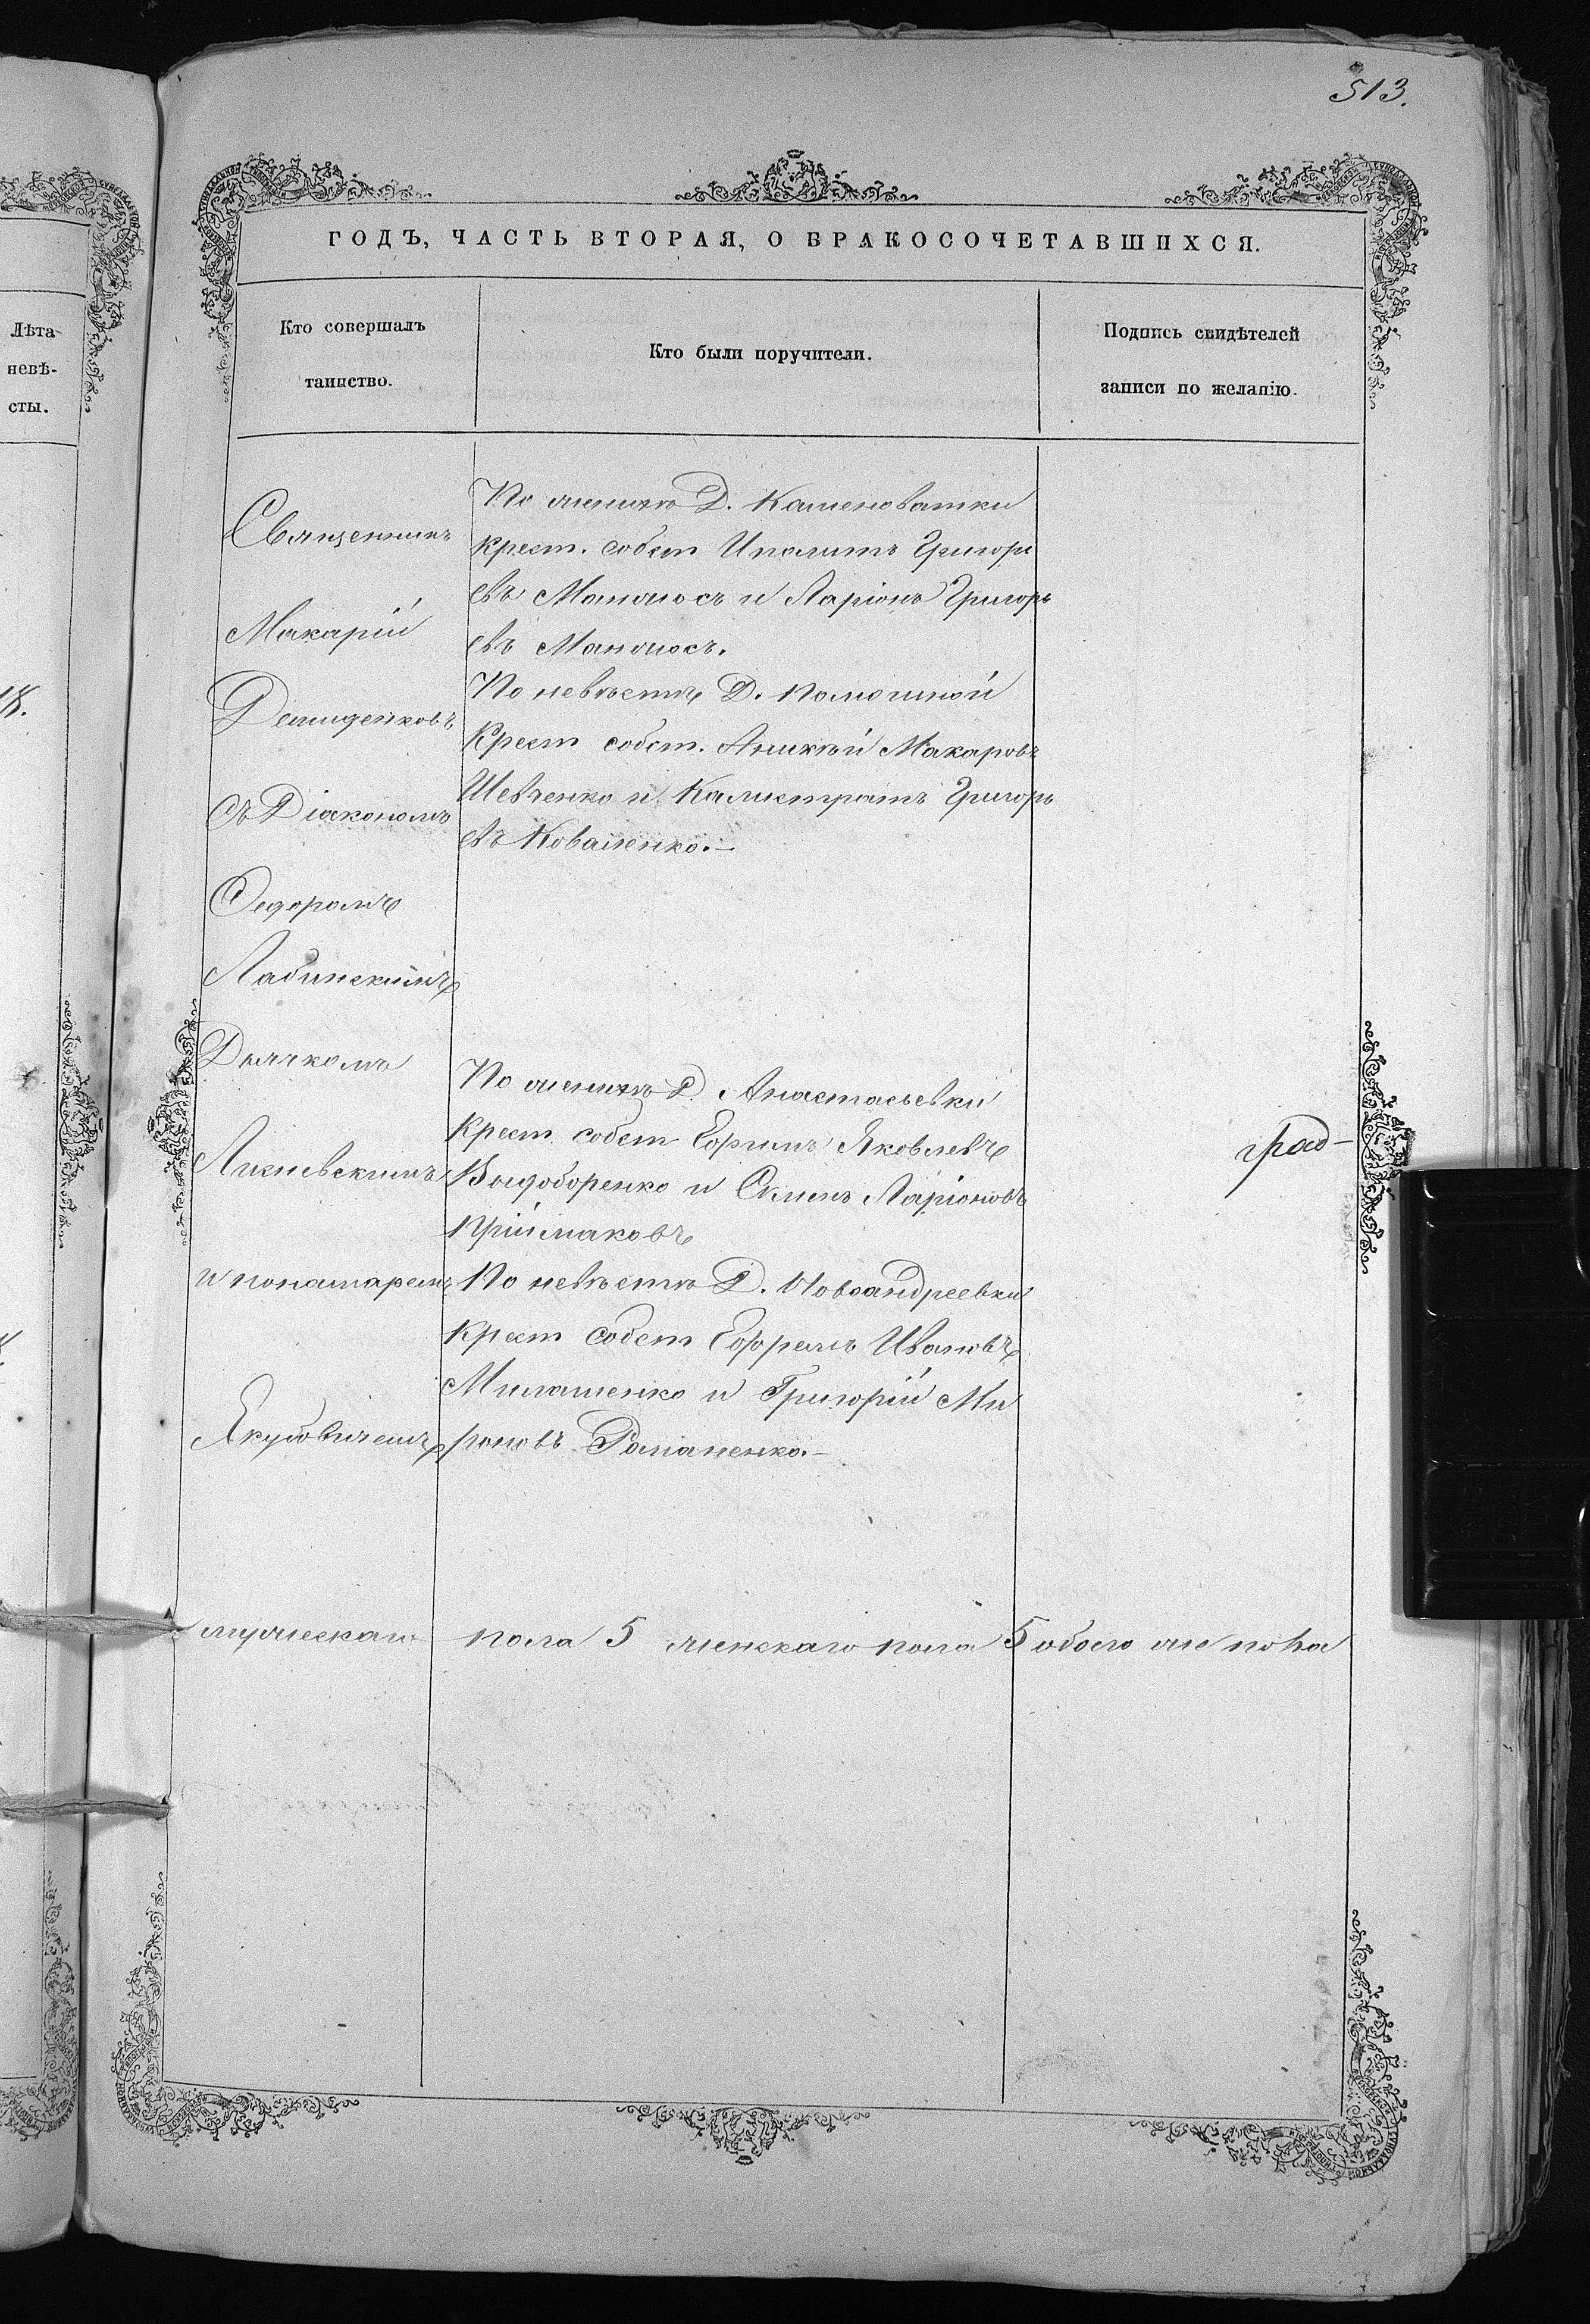 513.
ГОДЪ, ЧАСТЬ ВТОРАЯ, О БРАКОСОЧЕТАВШИХСЯ.
Лѣта
невѣ-
сты.
Кто совершалъ
таинство.
Кто были поручители.
Подпись свидѣтелей
записи по желанію.
Священникъ
Макарій
Демиденковъ
съ Діакономъ
Ѳедоромъ
Лабинскимъ
Дьячкомъ
и понамаремъ
Якубовичемъ
По женихѣ Д. Каменоватки
крест. собст Иполитъ Григорь
евъ Маномосъ и Ларіонъ Григорь
евъ Маномосъ.
По невѣстѣ Д. Помошной
Крест собст. Аникѣй Макаровъ
Шевченко и Калистратъ Григорь
евъ Коваленко.-
По женихѣ Д. Анастасьевки
Крест собст Ефимъ Яковлевъ
и Семенъ Ларіоновъ
Приймаковъ
По невѣстѣ Д. Новоандреевки
Крест собст Ефремъ Ивановъ
Милашенко и Григорій Ми
роновъ Романенко.-
град-
мужескаго пола 5 женскаго пола 5 обоего же пола